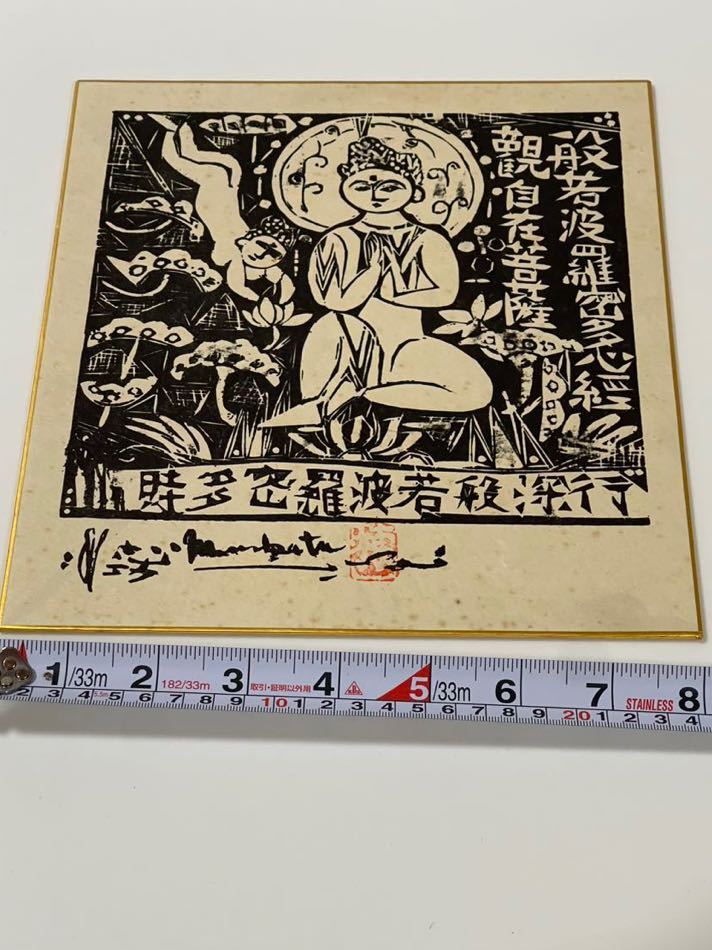 般若波羅蜜多心経
観自在菩薩
行深般若波羅密多時
Munakata
1 /33m 2 182/33m 3 取引・証明以外用 4 5 /33m 6 7 STAINLESS 8
2 3 4 5.5m 5 6 7 8 9 10 1 2 3 4 5 6 7 8 9 20 1 2 3 4